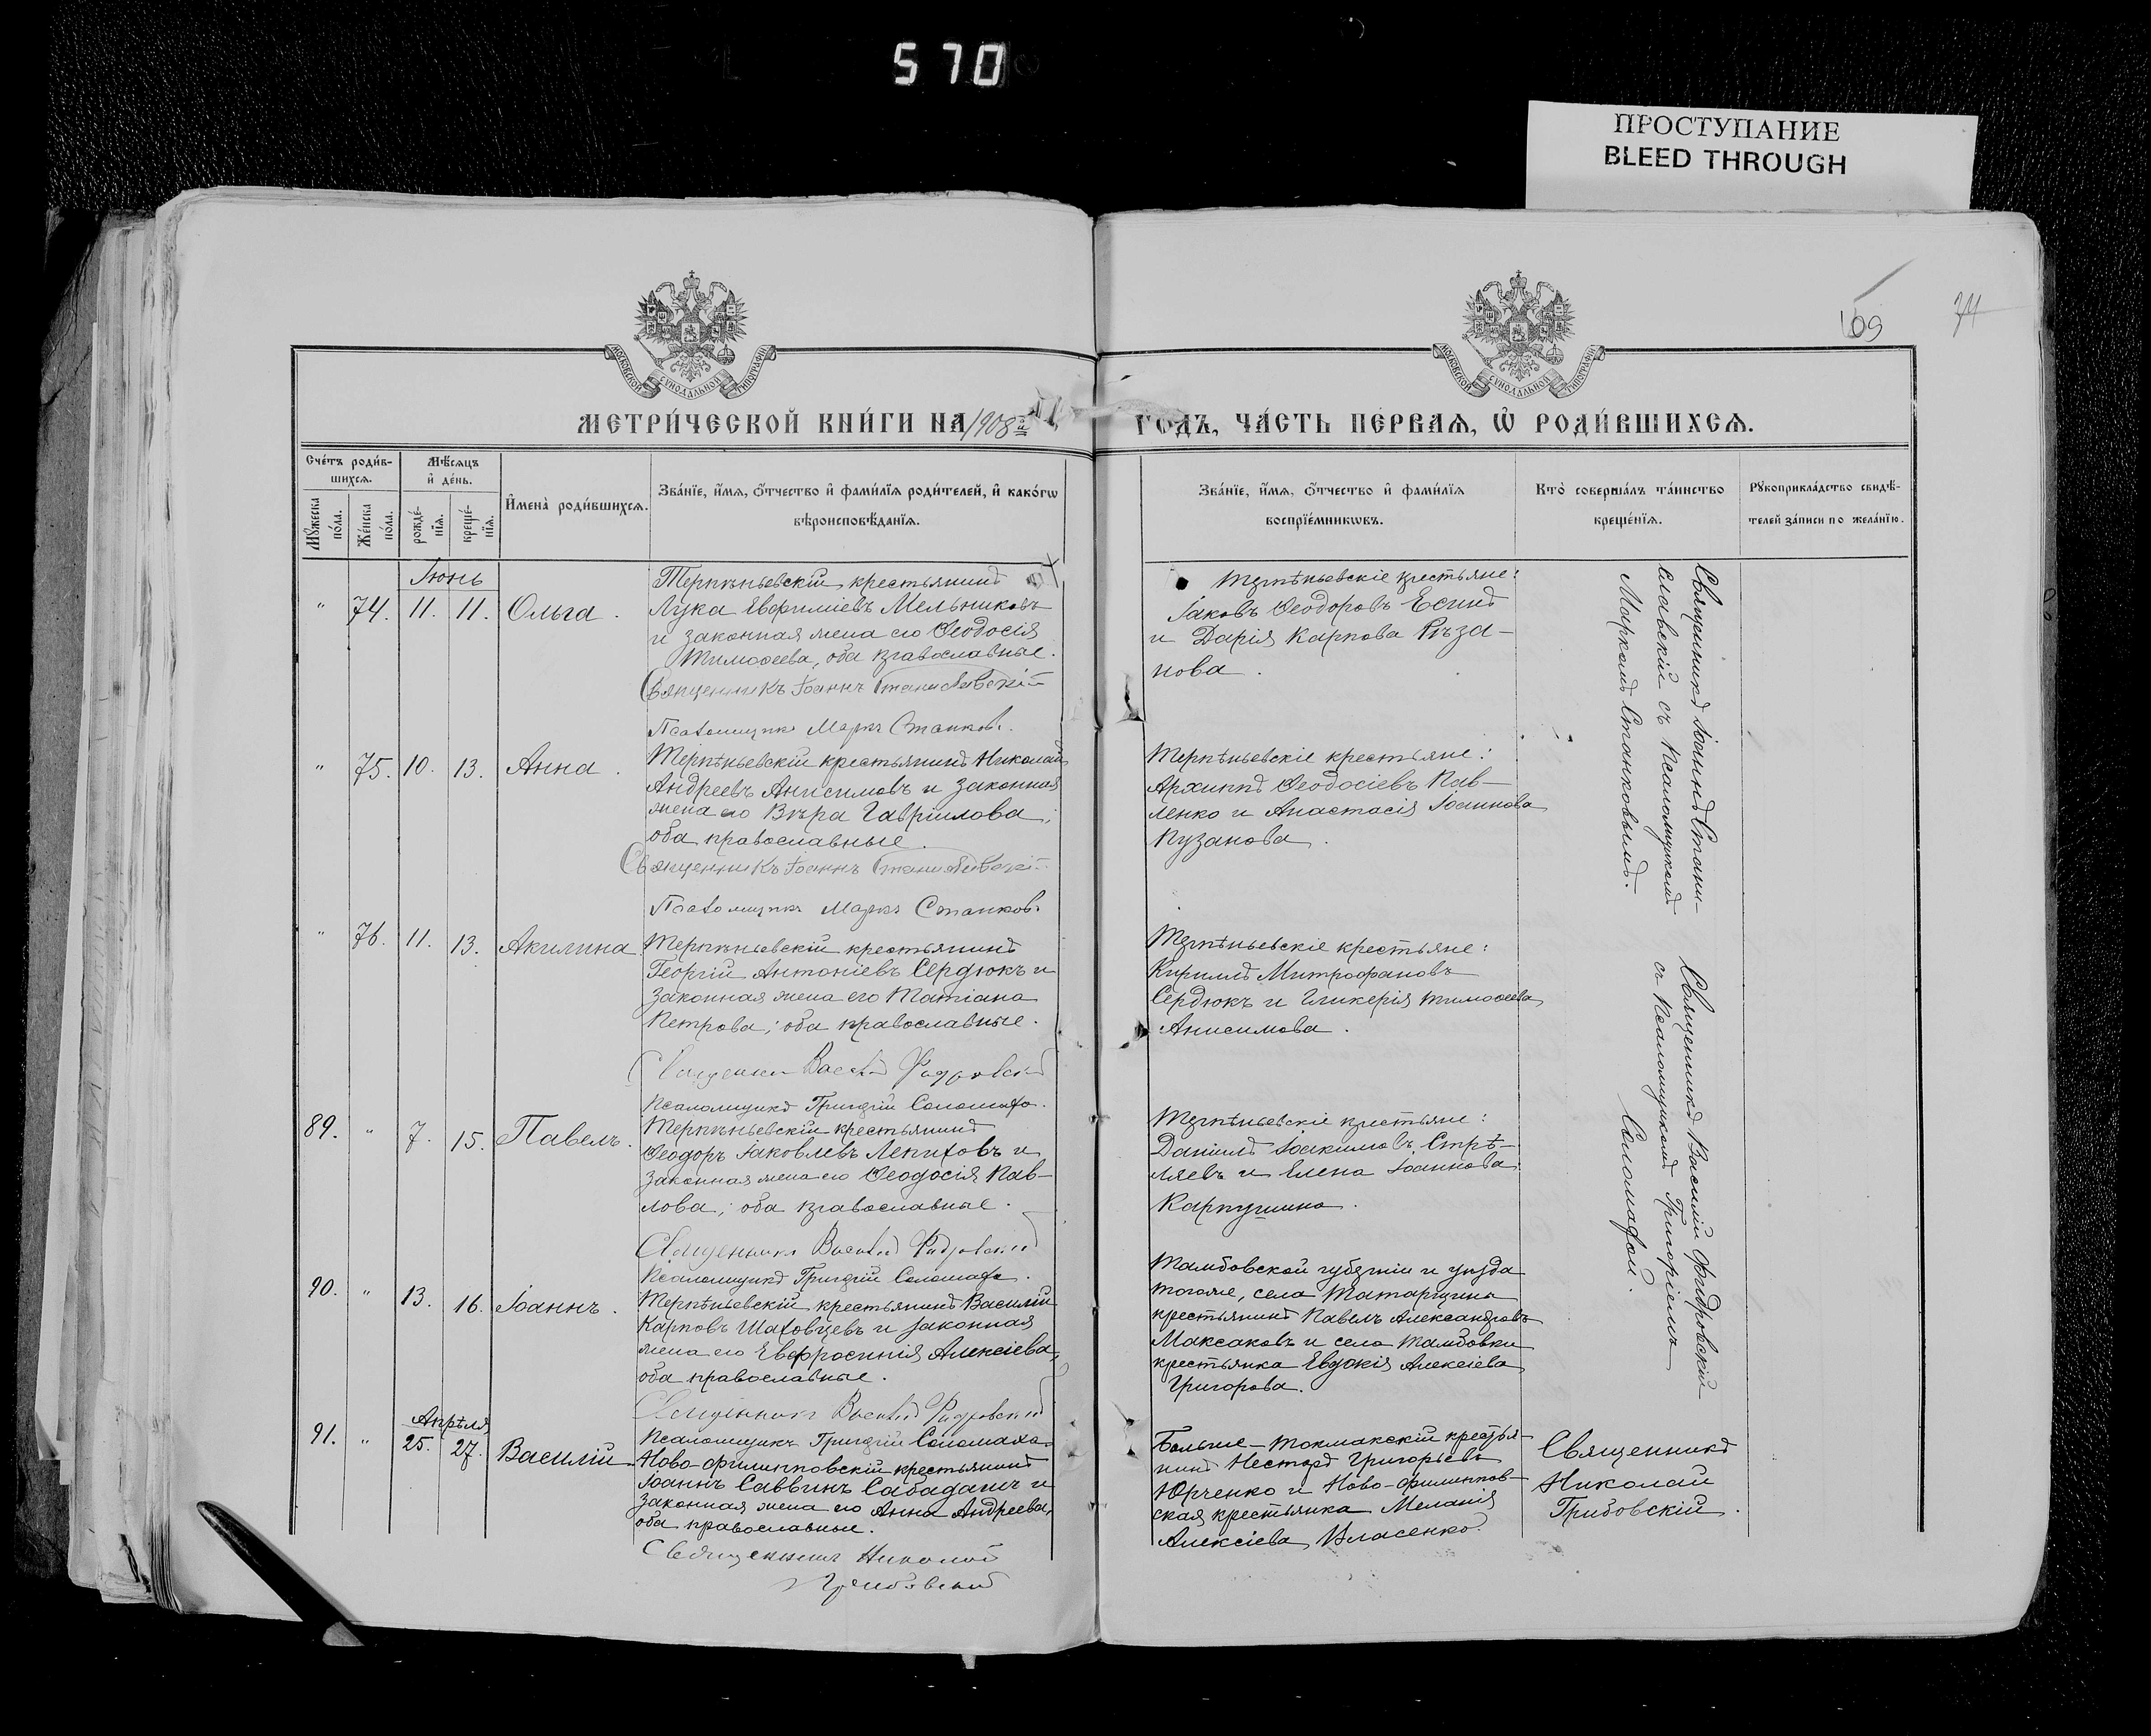 570
ПРОСТУПАНИЕ
BLEED THROUGH
109
74
МОСКОВСКОЙ СУНОДАЛЬНОЙ ТИПОГРАФІИ
МОСКОВСКОЙ СУНОДАЛЬНОЙ ТИПОГРАФІИ
МЕТРИ́ЧЕСКОЙ КНИ́ГИ НА 1908й
ГОДЪ, ЧА́СТЬ ПЕ́РВАѦ, Ѡ҆ РОДИ́ВШИХСѦ.
Сче́тъ роди́в-
шихсѧ.
Мѣ́сѧцъ
и҆ де́нь.
Мꙋ́жеска
по́ла.
Же́нска
по́ла.
рожде́-
нїѧ.
креще́-
нїѧ.
И҆мена̀ роди́вшихсѧ.
Зва́нїе, и҆́мѧ, ѻ҆́тчество и҆ фами́лїѧ роди́телей, и҆ како́гѡ
вѣроисповѣ́данїѧ.
Зва́нїе, и҆́мѧ, ѻ҆́тчество и҆ фами́лїѧ
воспрїе́мникѡвъ.
Кто̀ соверша́лъ та́инство
креще́нїѧ.
Рꙋкоприкла́дство свидѣ́-
телей за́писи по жела́нїю.
Іюнь
" 74. 11. 11. Ольга.
Терпѣньевскій крестьянинъ
Лука Евфиміевъ Мельниковъ
и законная жена его Ѳеодосія
Тимоѳеева, оба православные.
Священникъ Іоаннъ Станиславскій
Псаломщикъ Маркъ Станков.
Терпѣньевскіе крестьяне:
Іаковъ Ѳеодоровъ Есинъ
и Дарія Карпова Рѣза-
нова.
Священникъ Іоаннъ Стани-
славскій съ псаломщикомъ
Маркомъ Станковымъ.
" 75. 10. 13. Анна.
Терпѣньевскій крестьянинъ Николай
Андреевъ Анисимовъ и законная
жена его Вѣра Гавріилова,
оба православные.
Священникъ Іоаннъ Станиславскій
Псаломщикъ Маркъ Станков.
Терпѣньевскіе крестьяне:
Архиппъ Ѳеодосіевъ Пав-
ленко и Анастасія Іоаннова
Пузанова.
" 76. 11. 13. Акилина.
Терпѣньевскій крестьянинъ
Георгій Антоніевъ Сердюкъ и
законная жена его Татіана
Петрова; оба православные.
Священникъ Василій Фидровскій
Псаломщикъ Григорій Соломаха.
Терпѣньевскіе крестьяне:
Кириллъ Митрофановъ
Сердюкъ и Гликерія Тимоѳеева
Анисимова.
Священникъ Василій Фидровскій
съ псаломщикомъ Григоріемъ
Соломахой.
89. " 7. 15. Павелъ.
Терпѣньевскій крестьянинъ
Ѳеодоръ Іаковлевъ Лепиховъ и
законная жена его Ѳеодосія Пав-
лова; оба православные.
Священникъ Василій Фидровскій
Псаломщикъ Григорій Соломаха.
Терпѣньевскіе крестьяне:
Даніилъ Іоакимовъ Стрѣ-
ляевъ и Елена Іоаннова
Карпушина.
90. " 13. 16. Іоаннъ.
Терпѣньевскій крестьянинъ Василій
Карповъ Шаховцевъ и законная
жена его Евфросинія Алексіева,
оба православные.
Священникъ Василій Фидровскій
Псаломщикъ Григорій Соломаха.
Тамбовской губерніи и уѣзда
тогоже, села Татарщина
крестьянинъ Павелъ Александровъ
Максаковъ и села Тамбовки
крестьянка Евдокія Алексіева
Григорова.
Апрѣля
91. " 25. 27. Василій
Ново-филипповскій крестьянинъ
Іоаннъ Саввинъ Сабаданъ и
законная жена его Анна Андреева,
оба православные.
Священникъ Николай
Грибовскій
Больше-Токмакскій крестья-
нинъ Несторъ Григорьевъ
Юрченко и Ново-филиппов-
ская крестьянка Меланія
Алексіева Власенко.
Священникъ
Николай
Грибовскій.